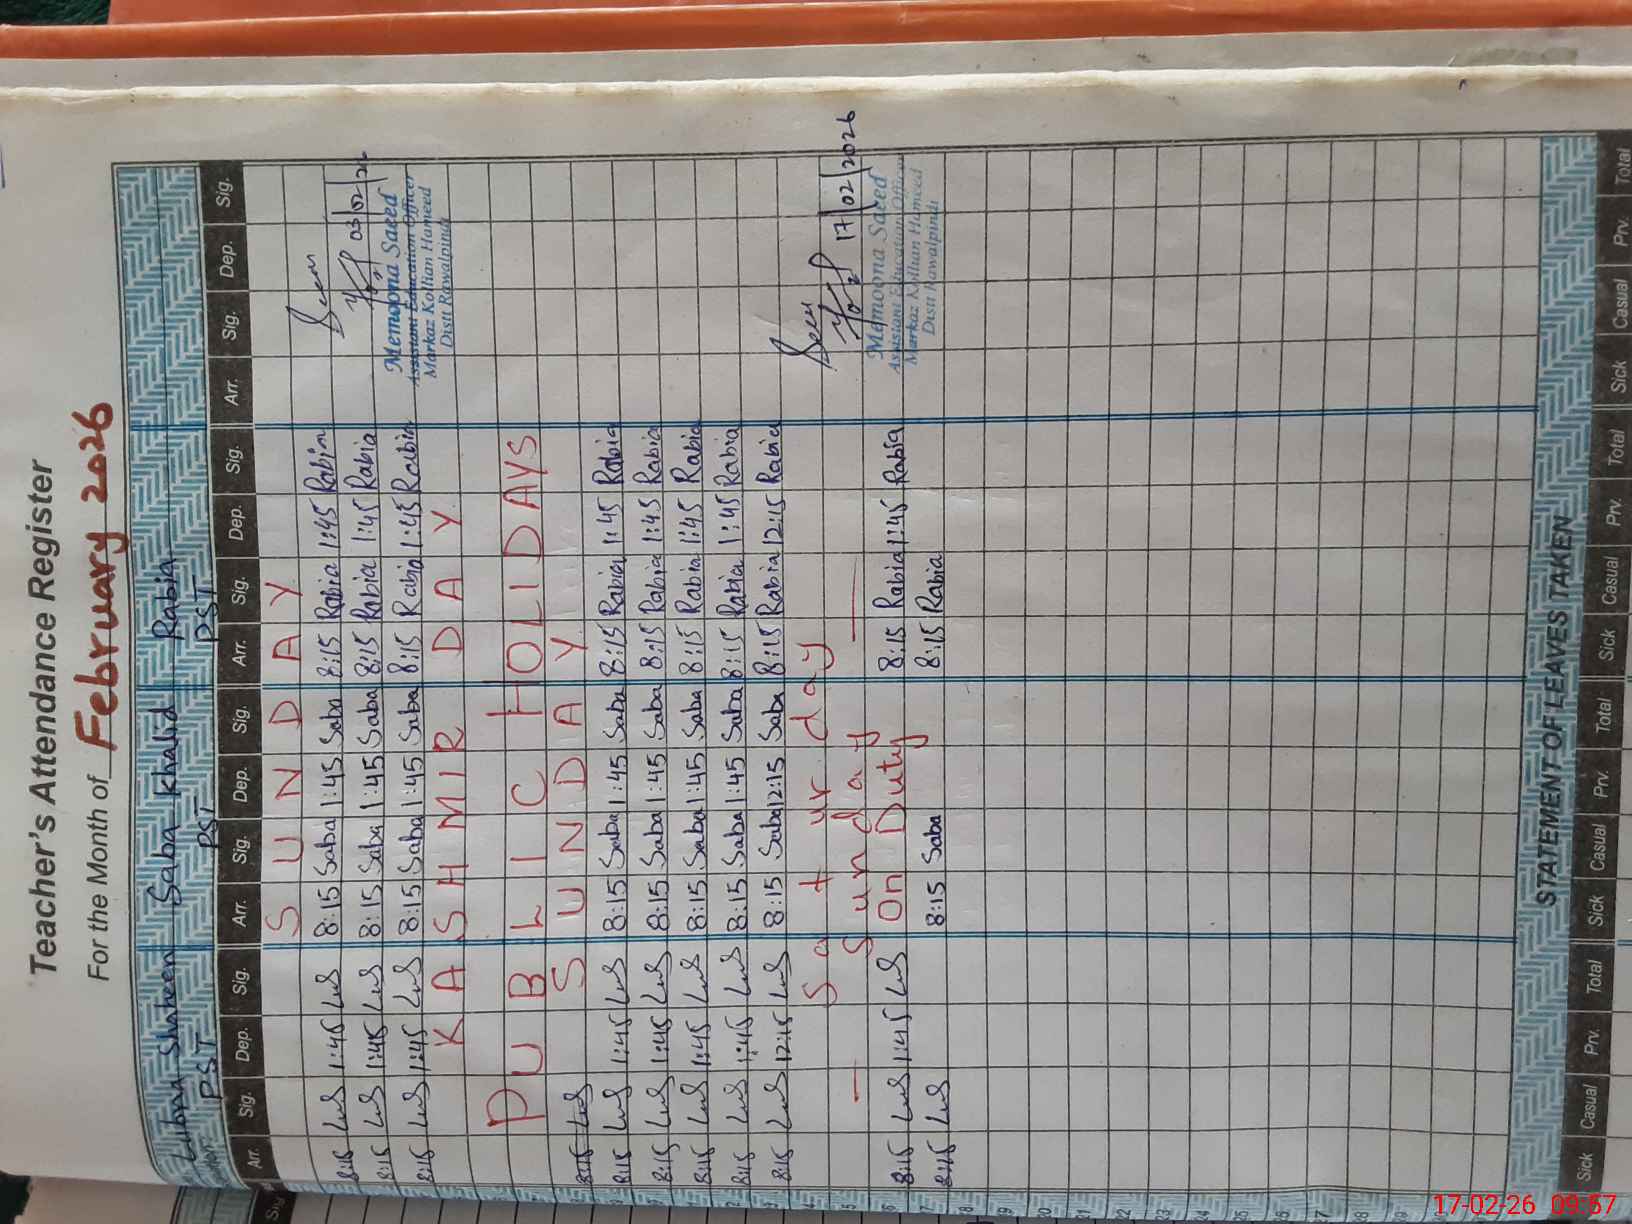 Teacher's Attendance Register
For the Month of February 2026
Lubna Shaheen Saba Khalid Rabia
PST PST PST
Arr. Sig. Dep. Sig. Arr. Sig. Dep. Sig. Arr. Sig. Dep. Sig. Arr. Sig. Dep. Sig.
SUNDAY
8:15 LuS 1:45 LuS 8:15 Saba 1:45 Saba 8:15 Rabia 1:45 Rabia
8:15 LuS 1:45 LuS 8:15 Saba 1:45 Saba 8:15 Rabia 1:45 Rabia
8:15 LuS 1:45 LuS 8:15 Saba 1:45 Saba 8:15 Rabia 1:45 Rabia
Seen
03/02/26
Memoona Saeed
Assistant Education Officer
Markaz Kollian Hameed
Distt Rawalpindi
KASHMIR DAY
PUBLIC HOLIDAYS
SUNDAY
8:15 LuS
8:15 LuS 1:45 LuS 8:15 Saba 1:45 Saba 8:15 Rabia 1:45 Rabia
8:15 LuS 1:45 LuS 8:15 Saba 1:45 Saba 8:15 Rabia 1:45 Rabia
8:15 LuS 1:45 LuS 8:15 Saba 1:45 Saba 8:15 Rabia 1:45 Rabia
8:15 LuS 1:45 LuS 8:15 Saba 1:45 Saba 8:15 Rabia 1:45 Rabia
8:15 LuS 12:15 LuS 8:15 Saba 12:15 Saba 8:15 Rabia 12:15 Rabia
Saturday
— Sunday —
8:15 LuS 1:45 LuS On Duty 8:15 Rabia 1:45 Rabia
8:15 LuS 8:15 Saba 8:15 Rabia
Seen
17/02/2026
Memoona Saeed
Assistant Education Officer
Markaz Kollian Hameed
Distt Rawalpindi
18
19
20
21
22
23
24
25
26
27
28
29
STATEMENT OF LEAVES TAKEN
Sick Casual Prv. Total Sick Casual Prv. Total Sick Casual Prv. Total Sick Casual Prv. Total
17-02-26 09:57